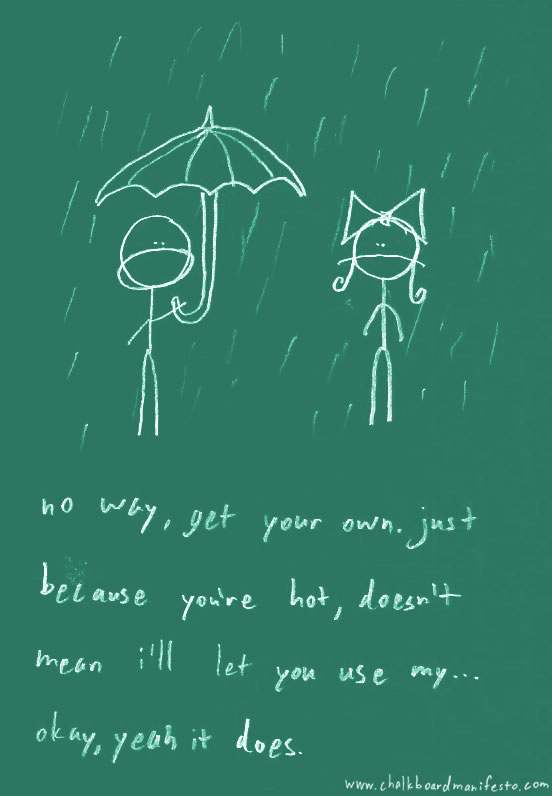 no way, get your own. just
because you're hot, doesn't
mean i'll let you use my...
okay, yeah it does.
www.chalkboardmanifesto.com